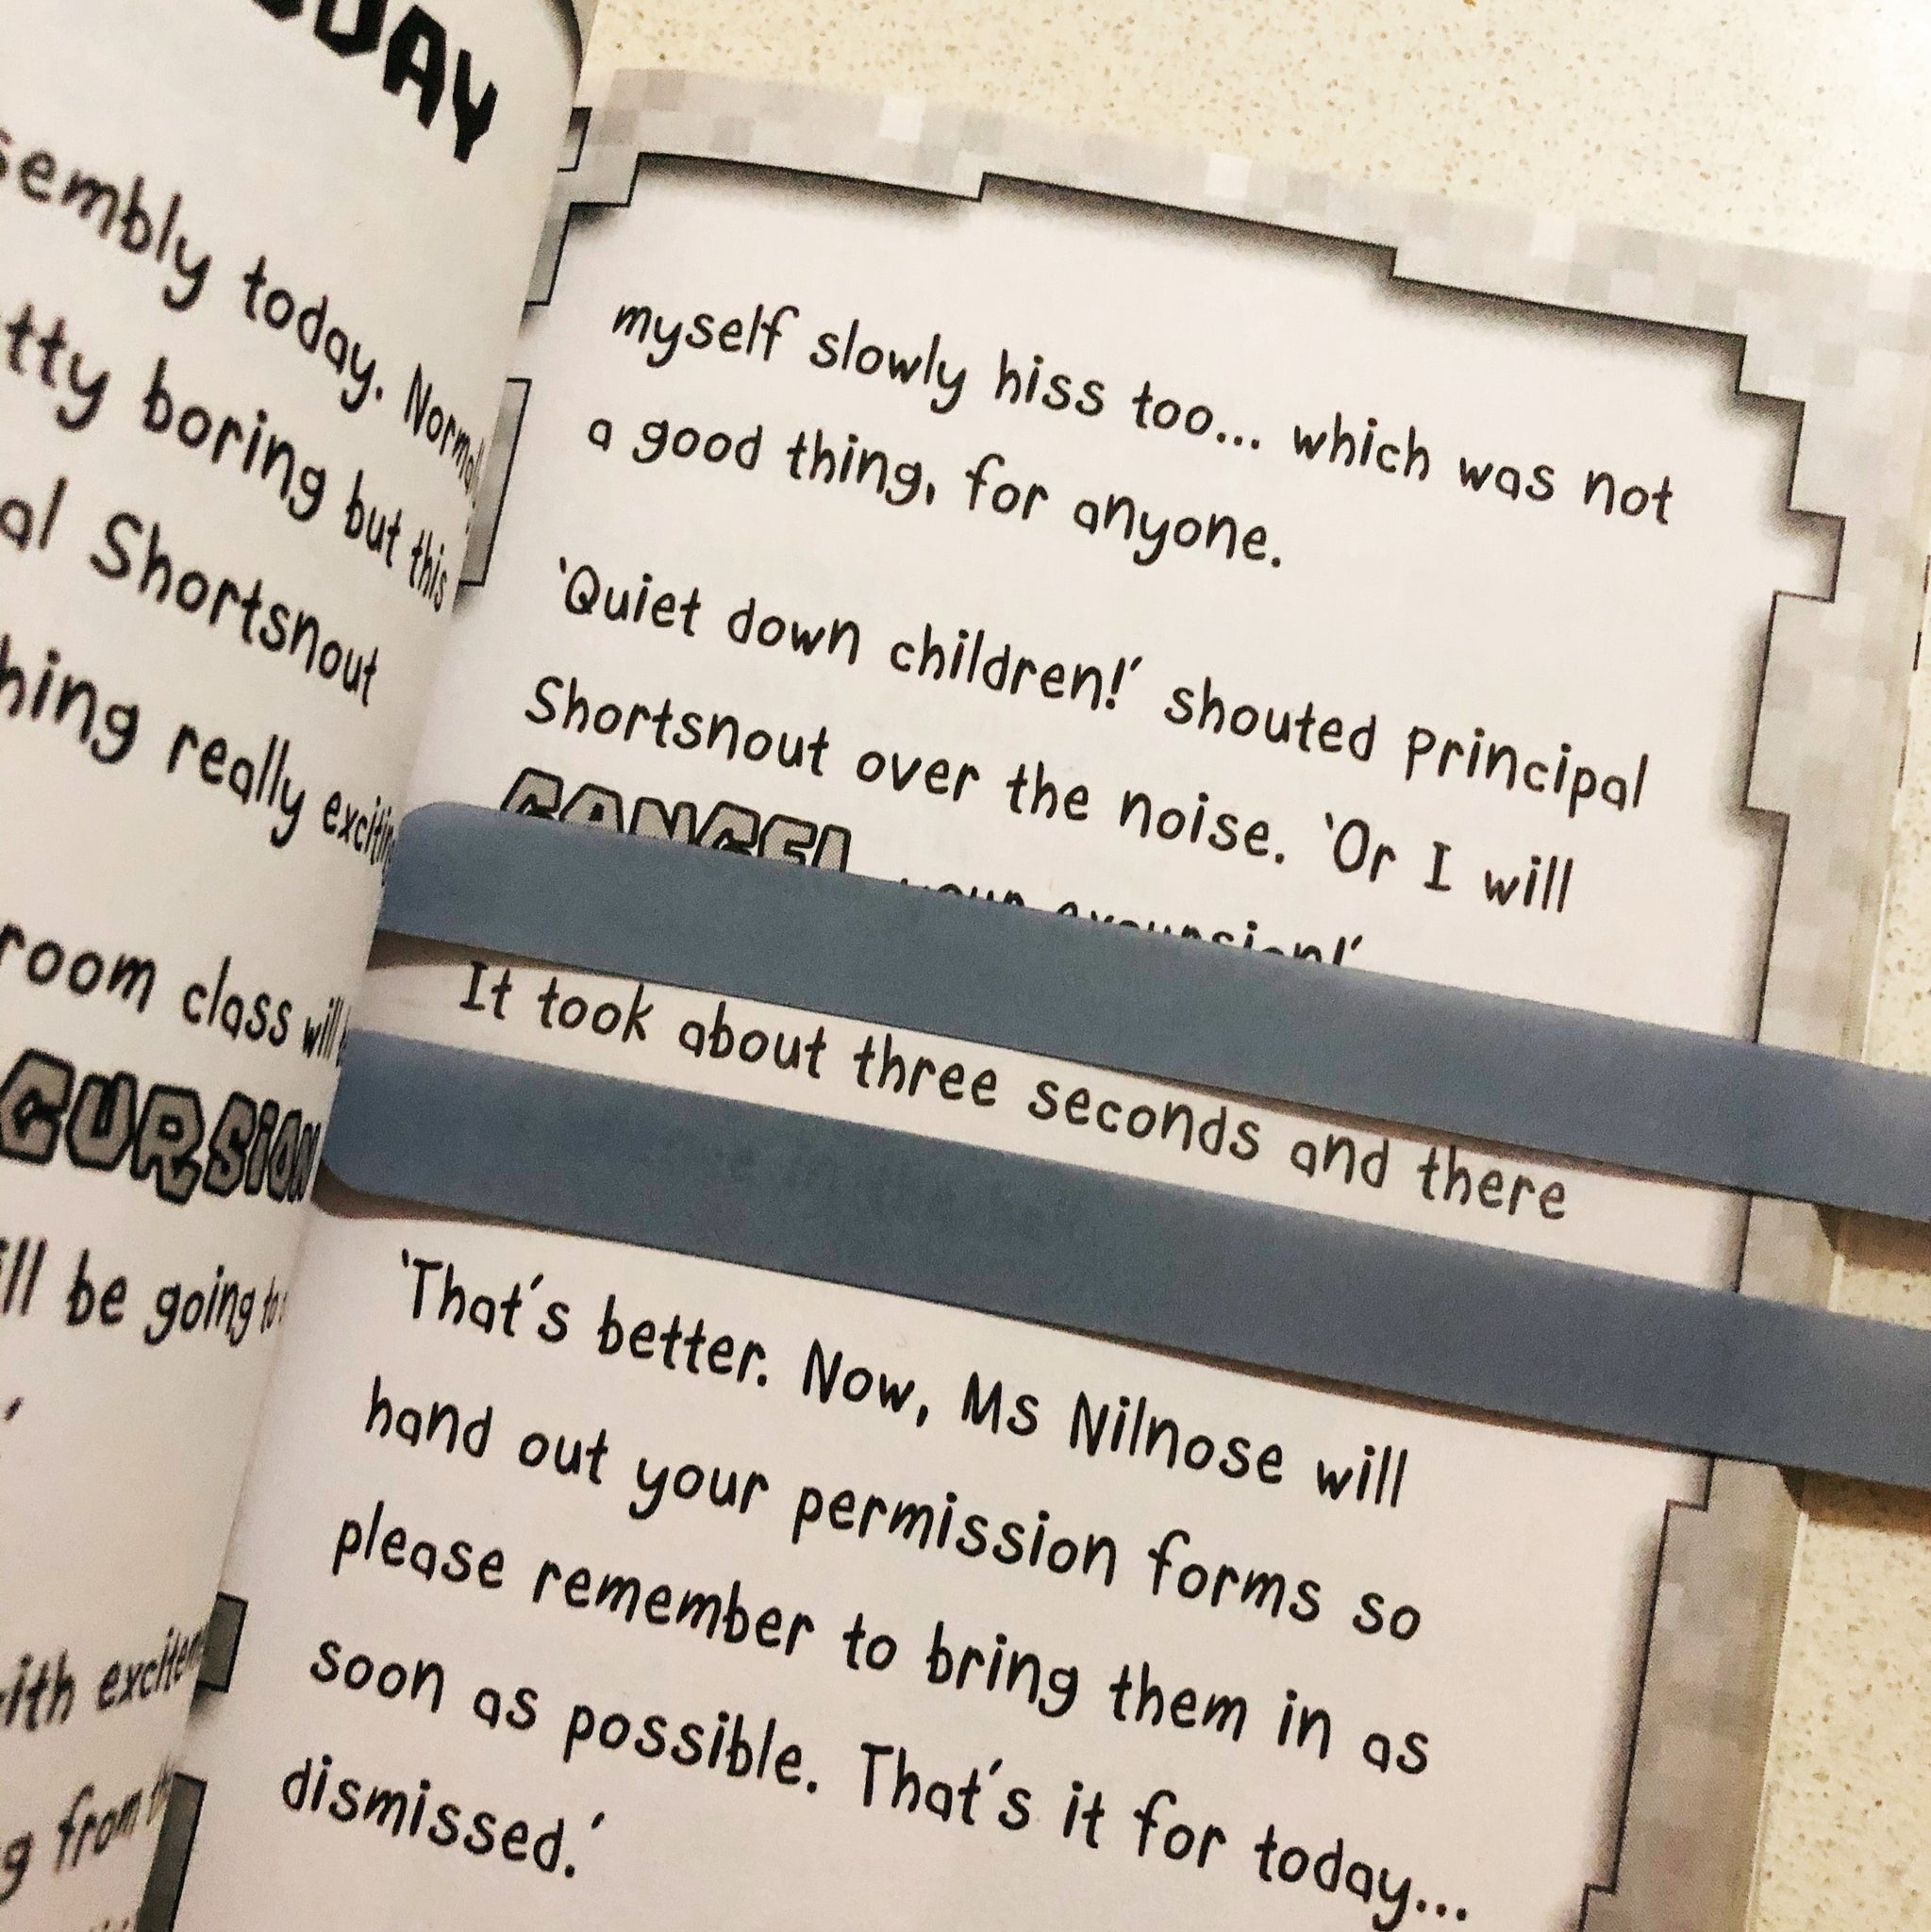 DAY
sembly today. Normally
tty boring but this
al Shortsnout
hing really exciting
room class will
CURSION
ill be going to
'
ith excitem
g from th
myself slowly hiss too... which was not
a good thing, for anyone.
'Quiet down children!' shouted Principal
Shortsnout over the noise. 'Or I will
CANCEL your excursion!'
It took about three seconds and there
'That's better. Now, Ms Nilnose will
hand out your permission forms so
please remember to bring them in as
soon as possible. That's it for today...
dismissed.'